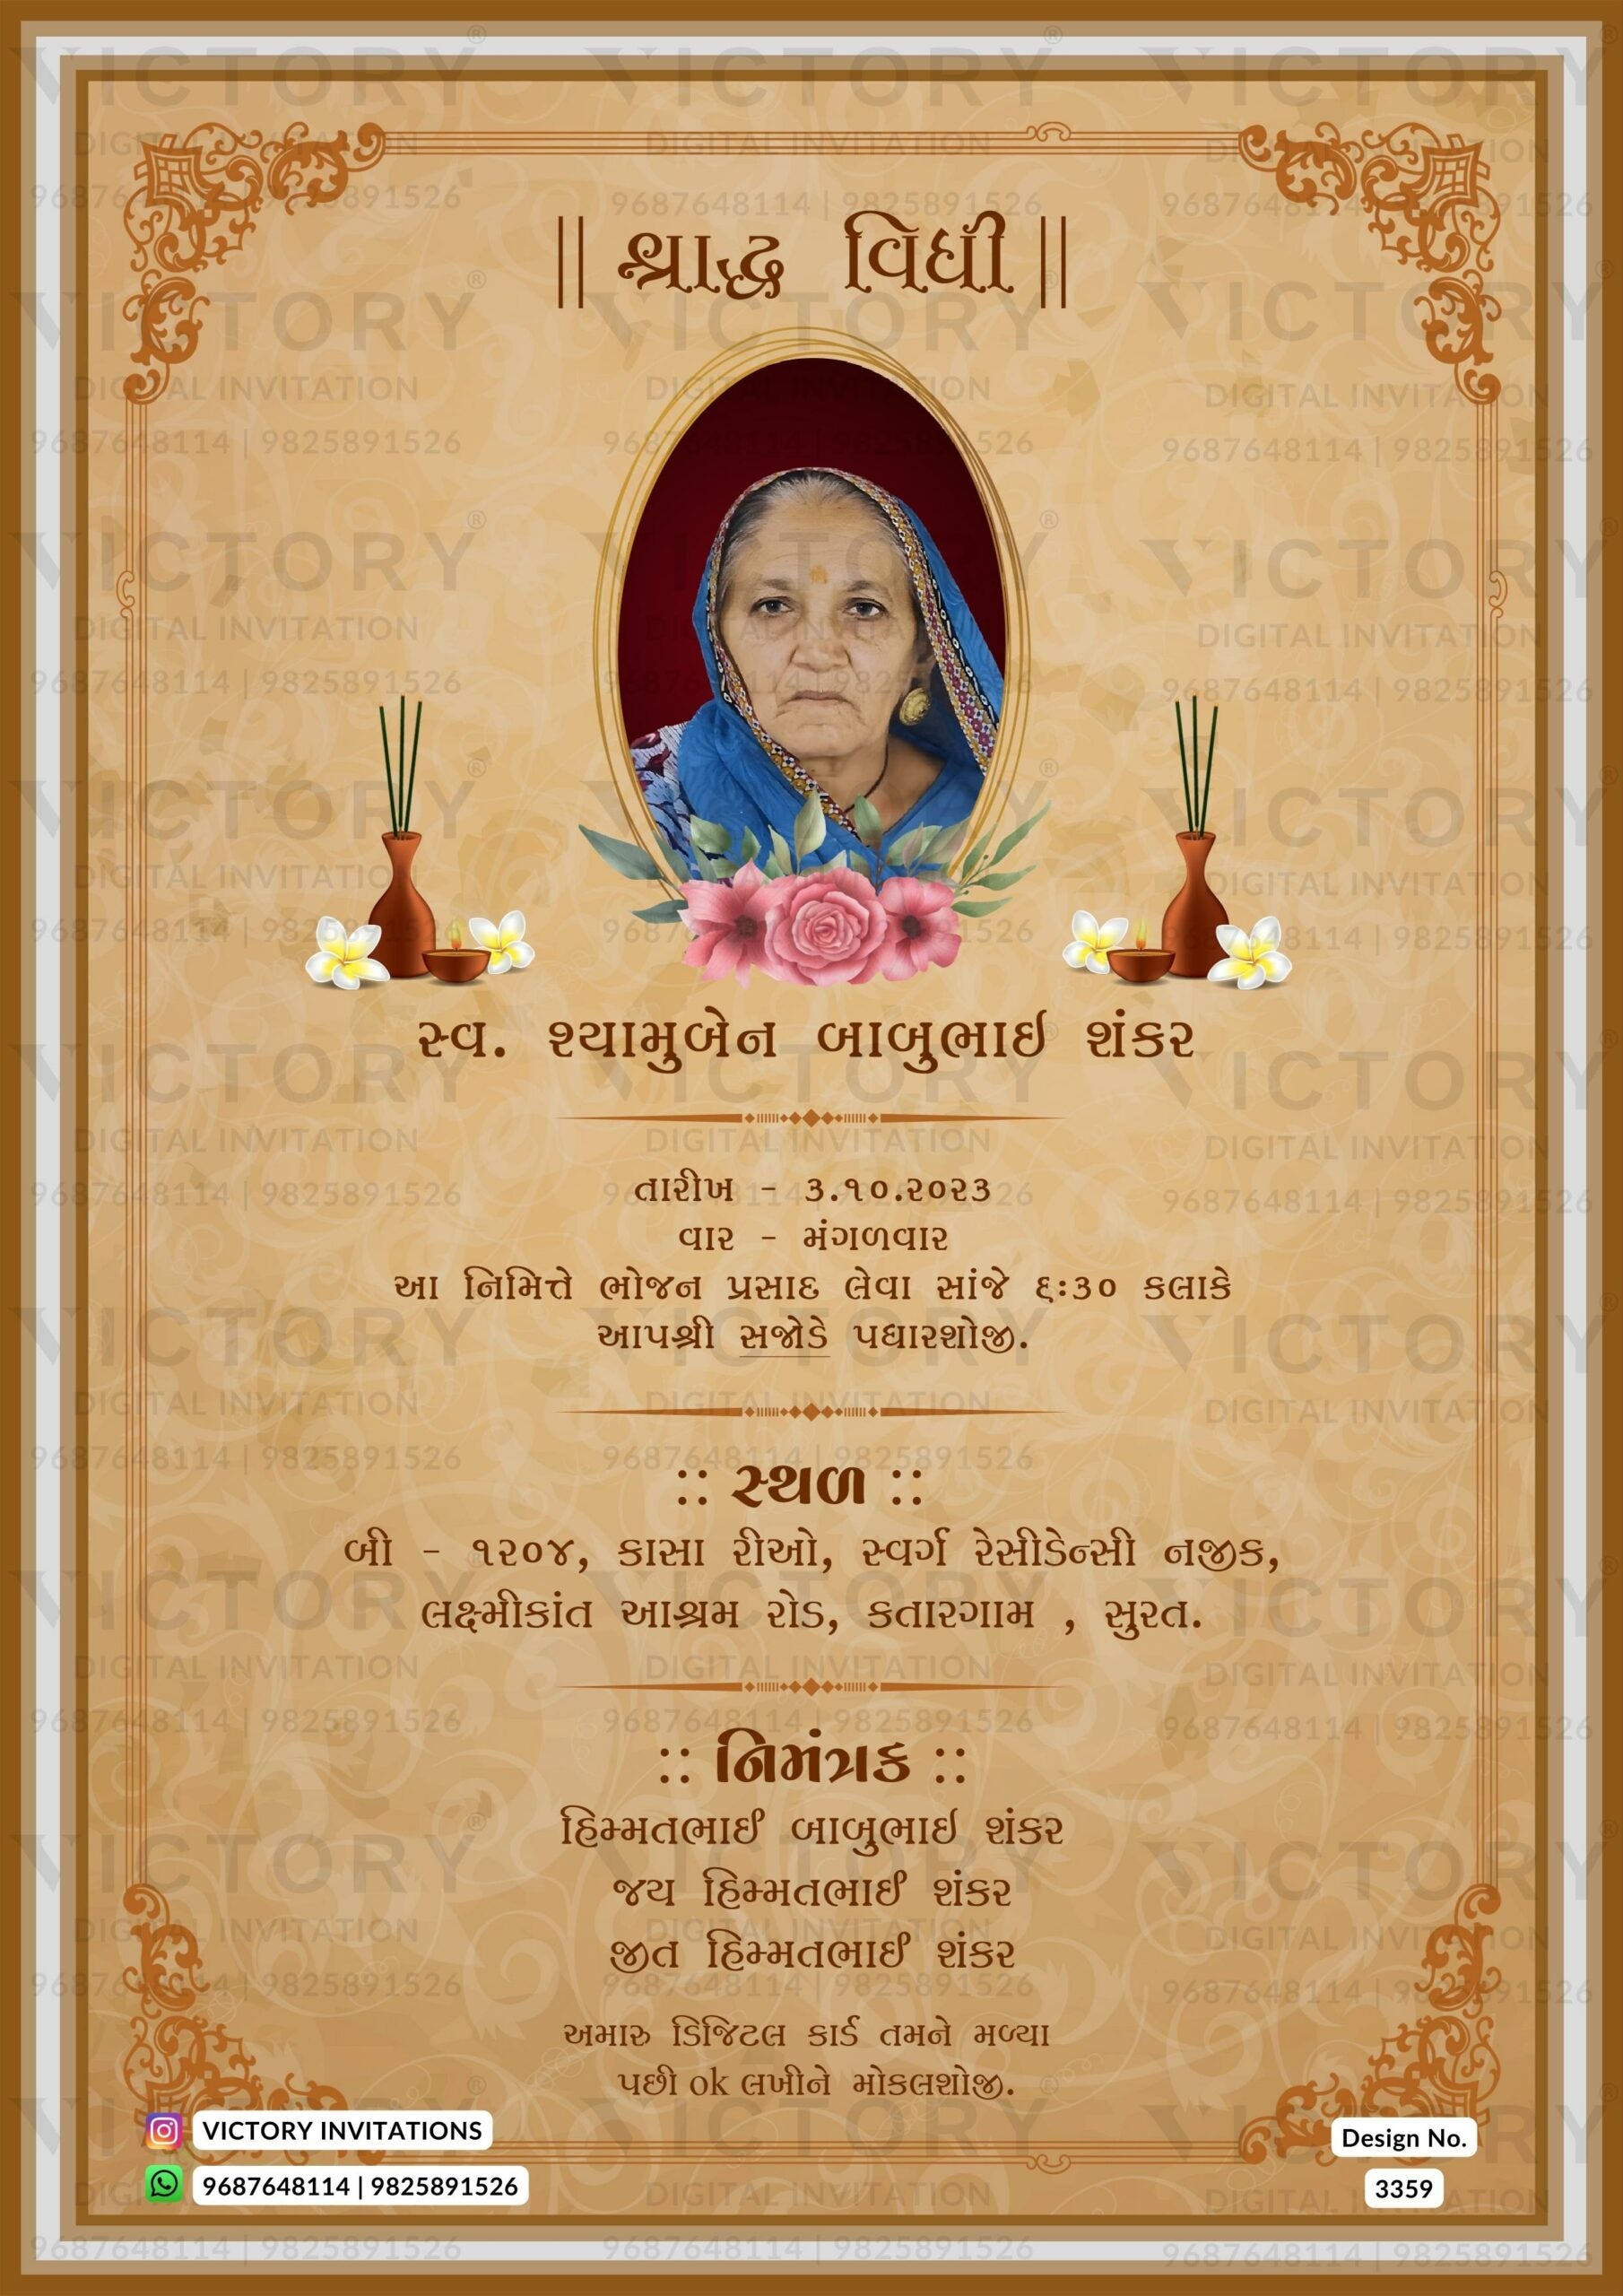 || શ્રાદ્ધ વિધી ||
સ્વ. શ્યામુબેન બાબુભાઈ શંકર
તારીખ - ૩.૧૦.૨૦૨૩
વાર - મંગળવાર
આ નિમિત્તે ભોજન પ્રસાદ લેવા સાંજે ૬:૩૦ કલાકે
આપશ્રી સજોડે પધારશોજી.
:: સ્થળ ::
બી - ૧૨૦૪, કાસા રીઓ, સ્વર્ગ રેસીડેન્સી નજીક,
લક્ષ્મીકાંત આશ્રમ રોડ, કતારગામ , સુરત.
:: નિમંત્રક ::
હિમ્મતભાઈ બાબુભાઈ શંકર
જય હિમ્મતભાઈ શંકર
જીત હિમ્મતભાઈ શંકર
અમારુ ડિજિટલ કાર્ડ તમને મળ્યા
પછી ok લખીને મોકલશોજી.
VICTORY INVITATIONS
9687648114 | 9825891526
Design No.
3359
VICTORY
DIGITAL INVITATION
9687648114 | 9825891526